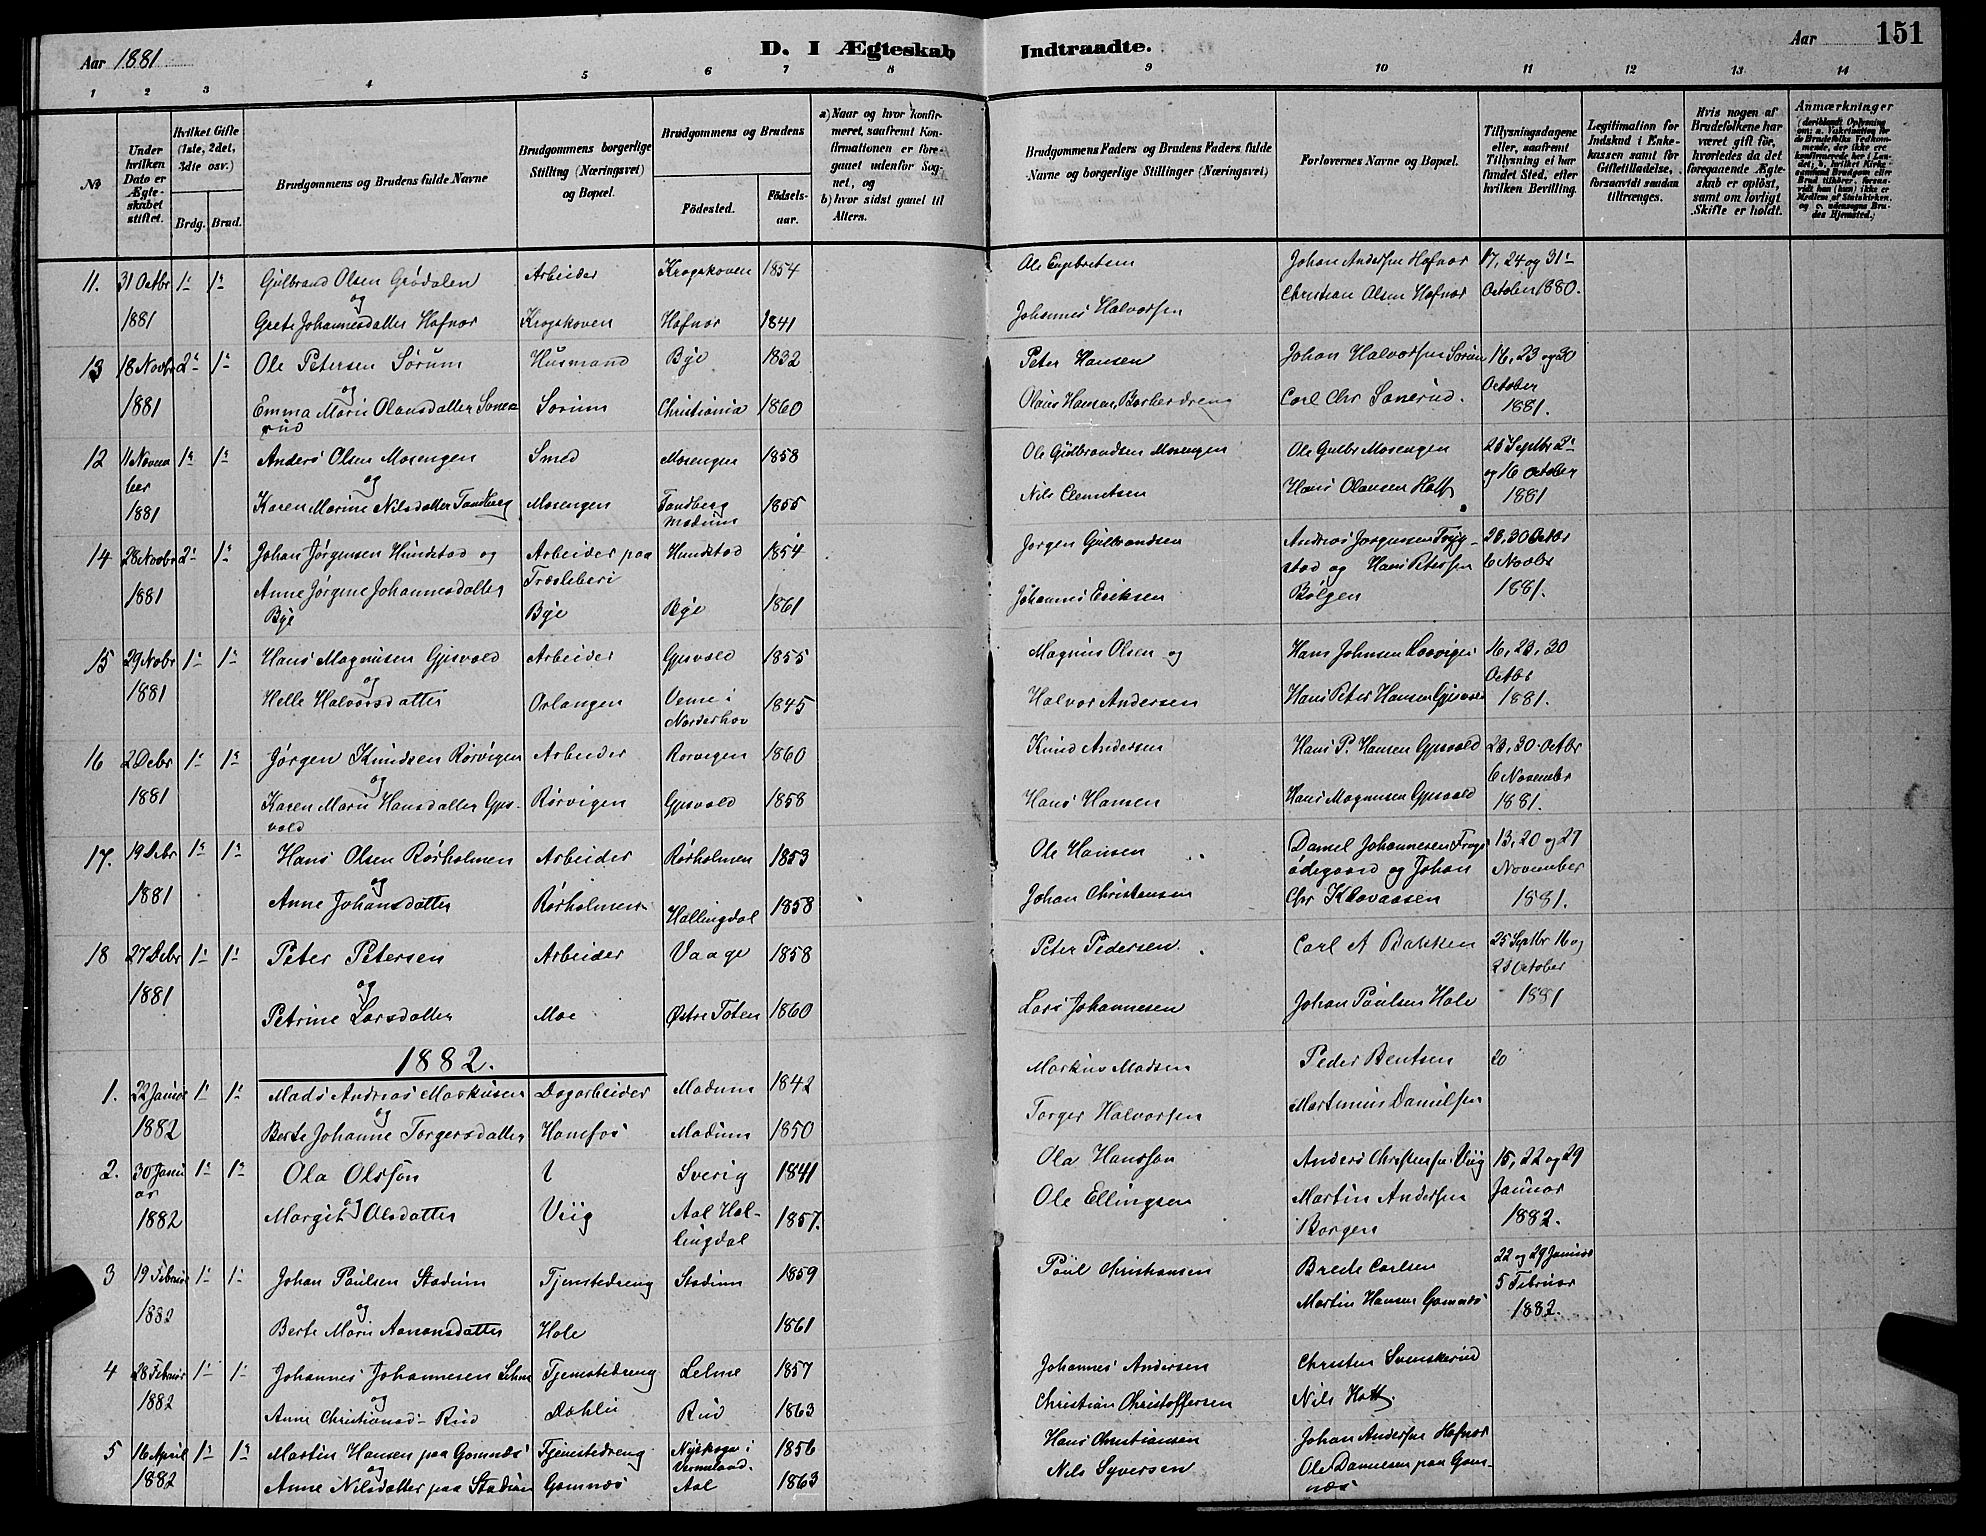 Aar 1881
D. I Ægteskab Indtraadte.
Aar
151
1 2 3 4 5 6 7 8 9 10 11 12 13 14
No
Under hvilken Dato er Ægteskabet stiftet.
Hvilket Gifte (1ste, 2det, 3die osv.)
Brdg. Brud.
Brudgommens og Brudens fulde Navne
Brudgommens borgerlige Stilling (Næringsvei) og Bopæl.
Brudgommens og Brudens
Fødested.
Fødselsaar.
a) Naar og hvor konfirmeret, saafremt Konfirmationen er foregaaet udenfor Sognet, og
b) hvor sidst gaaet til Alters.
Brudgommens Faders og Brudens Faders fulde Navne og borgerlige Stillinger (Næringsvei)
Forlovernes Navne og Bopæl.
Tillysningsdagene eller, saafremt Tillysning ei har fundet Sted, efter hvilken Bevilling.
Legitimation for Indskud i Enkekassen samt for Giftetilladelse, forsaavidt saadan tiltrænges.
Hvis nogen af Brudefolkene har været gift før, hvorledes da det foregaaende Ægteskab er opløst, samt om lovligt Skifte er holdt.
Anmærkninger
11. 31 Octbr 1' 1' Gulbrand Olsen Grødalen Arbeider Krogskoven 1854 Ole Engbretsen Johan Andersen Hafnor 17, 24 og 31'
1881 og Christian Olsen Hafnor October 1880.
Grete Johannesdatter Hafnor Krogskoven Hafnor 1841 Johannes Halvorsen
13 18 Novbr 2' 1' Ole Petersen Sørum Husmand Bye 1832 Peter Hansen Johan Halvorsen Sørum 16, 23 og 30
1881 og October
Emma Marie Olausdatter Sonerud Sørum Christiania 1860 Olaus Hansen, Carl Chr Sonerud. 1881.
12 11 November 1' 1' Anders Olsen Mosengen Smed Mosengen 1858 Ole Gulbrandsen Mosengen Ole Gulbr Mosengen 25 Septbr 2'
1881 og og 16 October
Karen Marine Nilsdatter Tandberg Mosengen Tandberg Modum 1855 Nils Clemetsen Hans Olausen 1881
14 28 Novbr 2' 1' Johan Jørgensen Hundstad og Arbeider paa Hundstad 1854 Jørgen Gulbrandsen Andreas Jørgensen Trygstad og Hans Petersen 23, 30 Octbr
1881 Anne Jørgine Johannesdatter Træsliberi 6 Novbr
Bye Bye Bye 1861 Johannes Eriksen Bølgen 1881.
15 29 Novbr 1' 1' Hans Magnusen Gjesvold Arbeider Gjesvold 1855 Magnus Olsen og Hans Johnsen 16, 23, 30
1881 og Octbr
Helle Halvorsdatter Orlangen Veme i Norderhov 1845 Halvor Andersen Hans Peter Hansen Gjesvold 1881.
16 2 Debr 1' 1' Jørgen Knudsen Rørvigen Arbeider Rørvigen 1860 Knud Andersen Hans P. Hansen Gjesvold 23, 30 Octbr
1881 og 6 November
Karen Marie Hansdatter Gjesvold Rørvigen Gjesvold 1858 Hans Hansen Hans Magnusen Gjesvold 1881.
17. 19 Debr 1' 1' Hans Olsen Rørholmen Arbeider Rørholmen 1853 Ole Hansen Daniel Johannesen Frogødegaard og Johan 13, 20 og 27
1881 og November
Anne Johansdatter Rørholmen Hallingdal 1858 Johan Christensen Chr 1881.
18 27 Debr 1' 1' Peter Petersen Arbeider Vaage 1858 Peter Pedersen Carl A Bakken 25 Septbr 16 og
1881 og 23 October
Petrine Larsdatter Moe Østre Toten 1860 Lars Johannesen Johan Paulsen Hole 1881
1882.
1. 22 Januar 1' 1' Mads Andreas Markusen Dagarbeider Modum 1842 Markus Madsen Peder Bentsen 20
1882 og
Berte Johanne Torgersdatter Hønefos Modum 1850 Torger Halvorsen Martinius Danielsen
2. 30 Januar 1' 1' Ola Olsson Sverig 1841 Ola Hansson Anders Christensen Viig 15, 22 og 29
1882 og Januar
Margit Olsdatter Viig Aal Hallingdal 1857. Ole Ellingsen Martin Andersen Borgen 1882.
3 19 Februar 1' 1' Johan Paulsen Stadum Tjenestedreng Stadum 1859 Paul Christiansen Brede Carlsen 22 og 29 Januar
1882 og 5 Februar
Berte Marie Aanonsdatter Hole 1861 Martin Hansen Gomnæs 1882.
4 28 Februar 1' 1' Johannes Johannesen Lelme Tjenestedreng Lelme 1857 Johannes Andersen Christen Svenskerud
1882 og
Anne Christiansd- Rud Dæhlie Rud 1863 Christian Christoffersen Nils
5 16 April 1' 1' Martin Hansen paa Gomnæs Tjenestedreng Nyskoga i Vermeland. 1856 Hans Christiansen Johan Andersen Hafnor
1882 og
Anne Nilsdatter paa Stadum Gomnæs Aal 1863 Nils Syversen Ole Danielsen paa Gomnæs